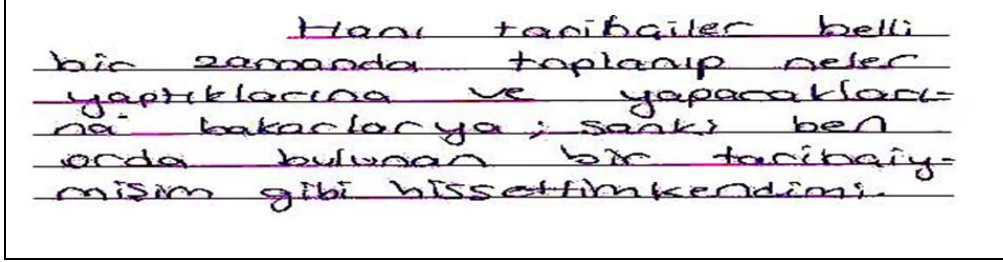 Hani tarihçiler belli
bir zamanda toplanıp neler
yaptıklarına ve yapacakları-
na bakarlar ya ; sanki ben
orda bulunan bir tarihçiy-
mişim gibi hissettim kendimi.